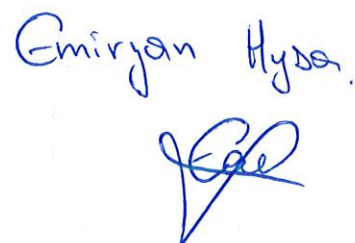 Emiryan Hysa.